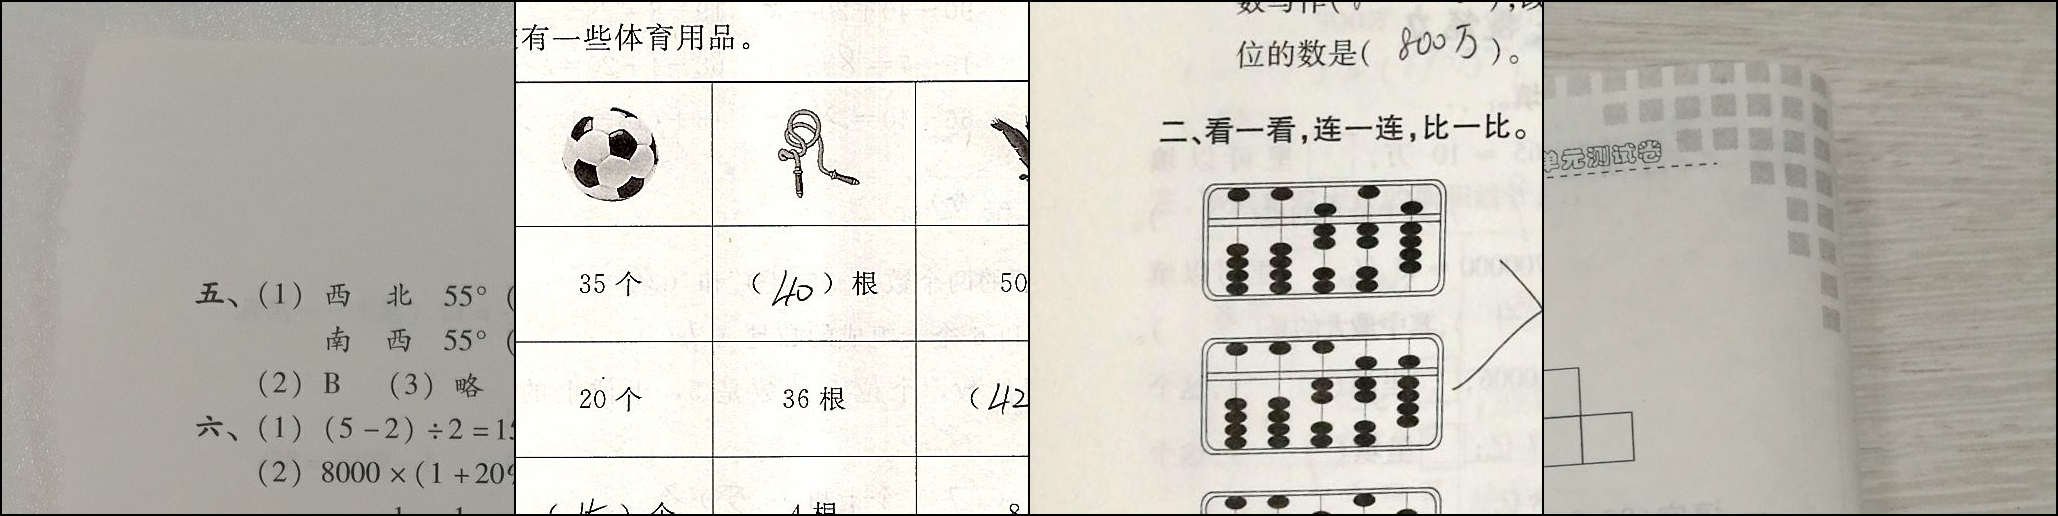 五、(1) 西 北 55° (
南 西 55° (
(2) B (3) 略
六、(1) (5-2)÷2=15
(2) 8000×(1+20%
有一些体育用品。
35 个 (40) 根 50
20 个 36 根 (42
(15) 个 4 根 8
位的数是( 800万 )。
二、看一看,连一连,比一比。
单元测试卷